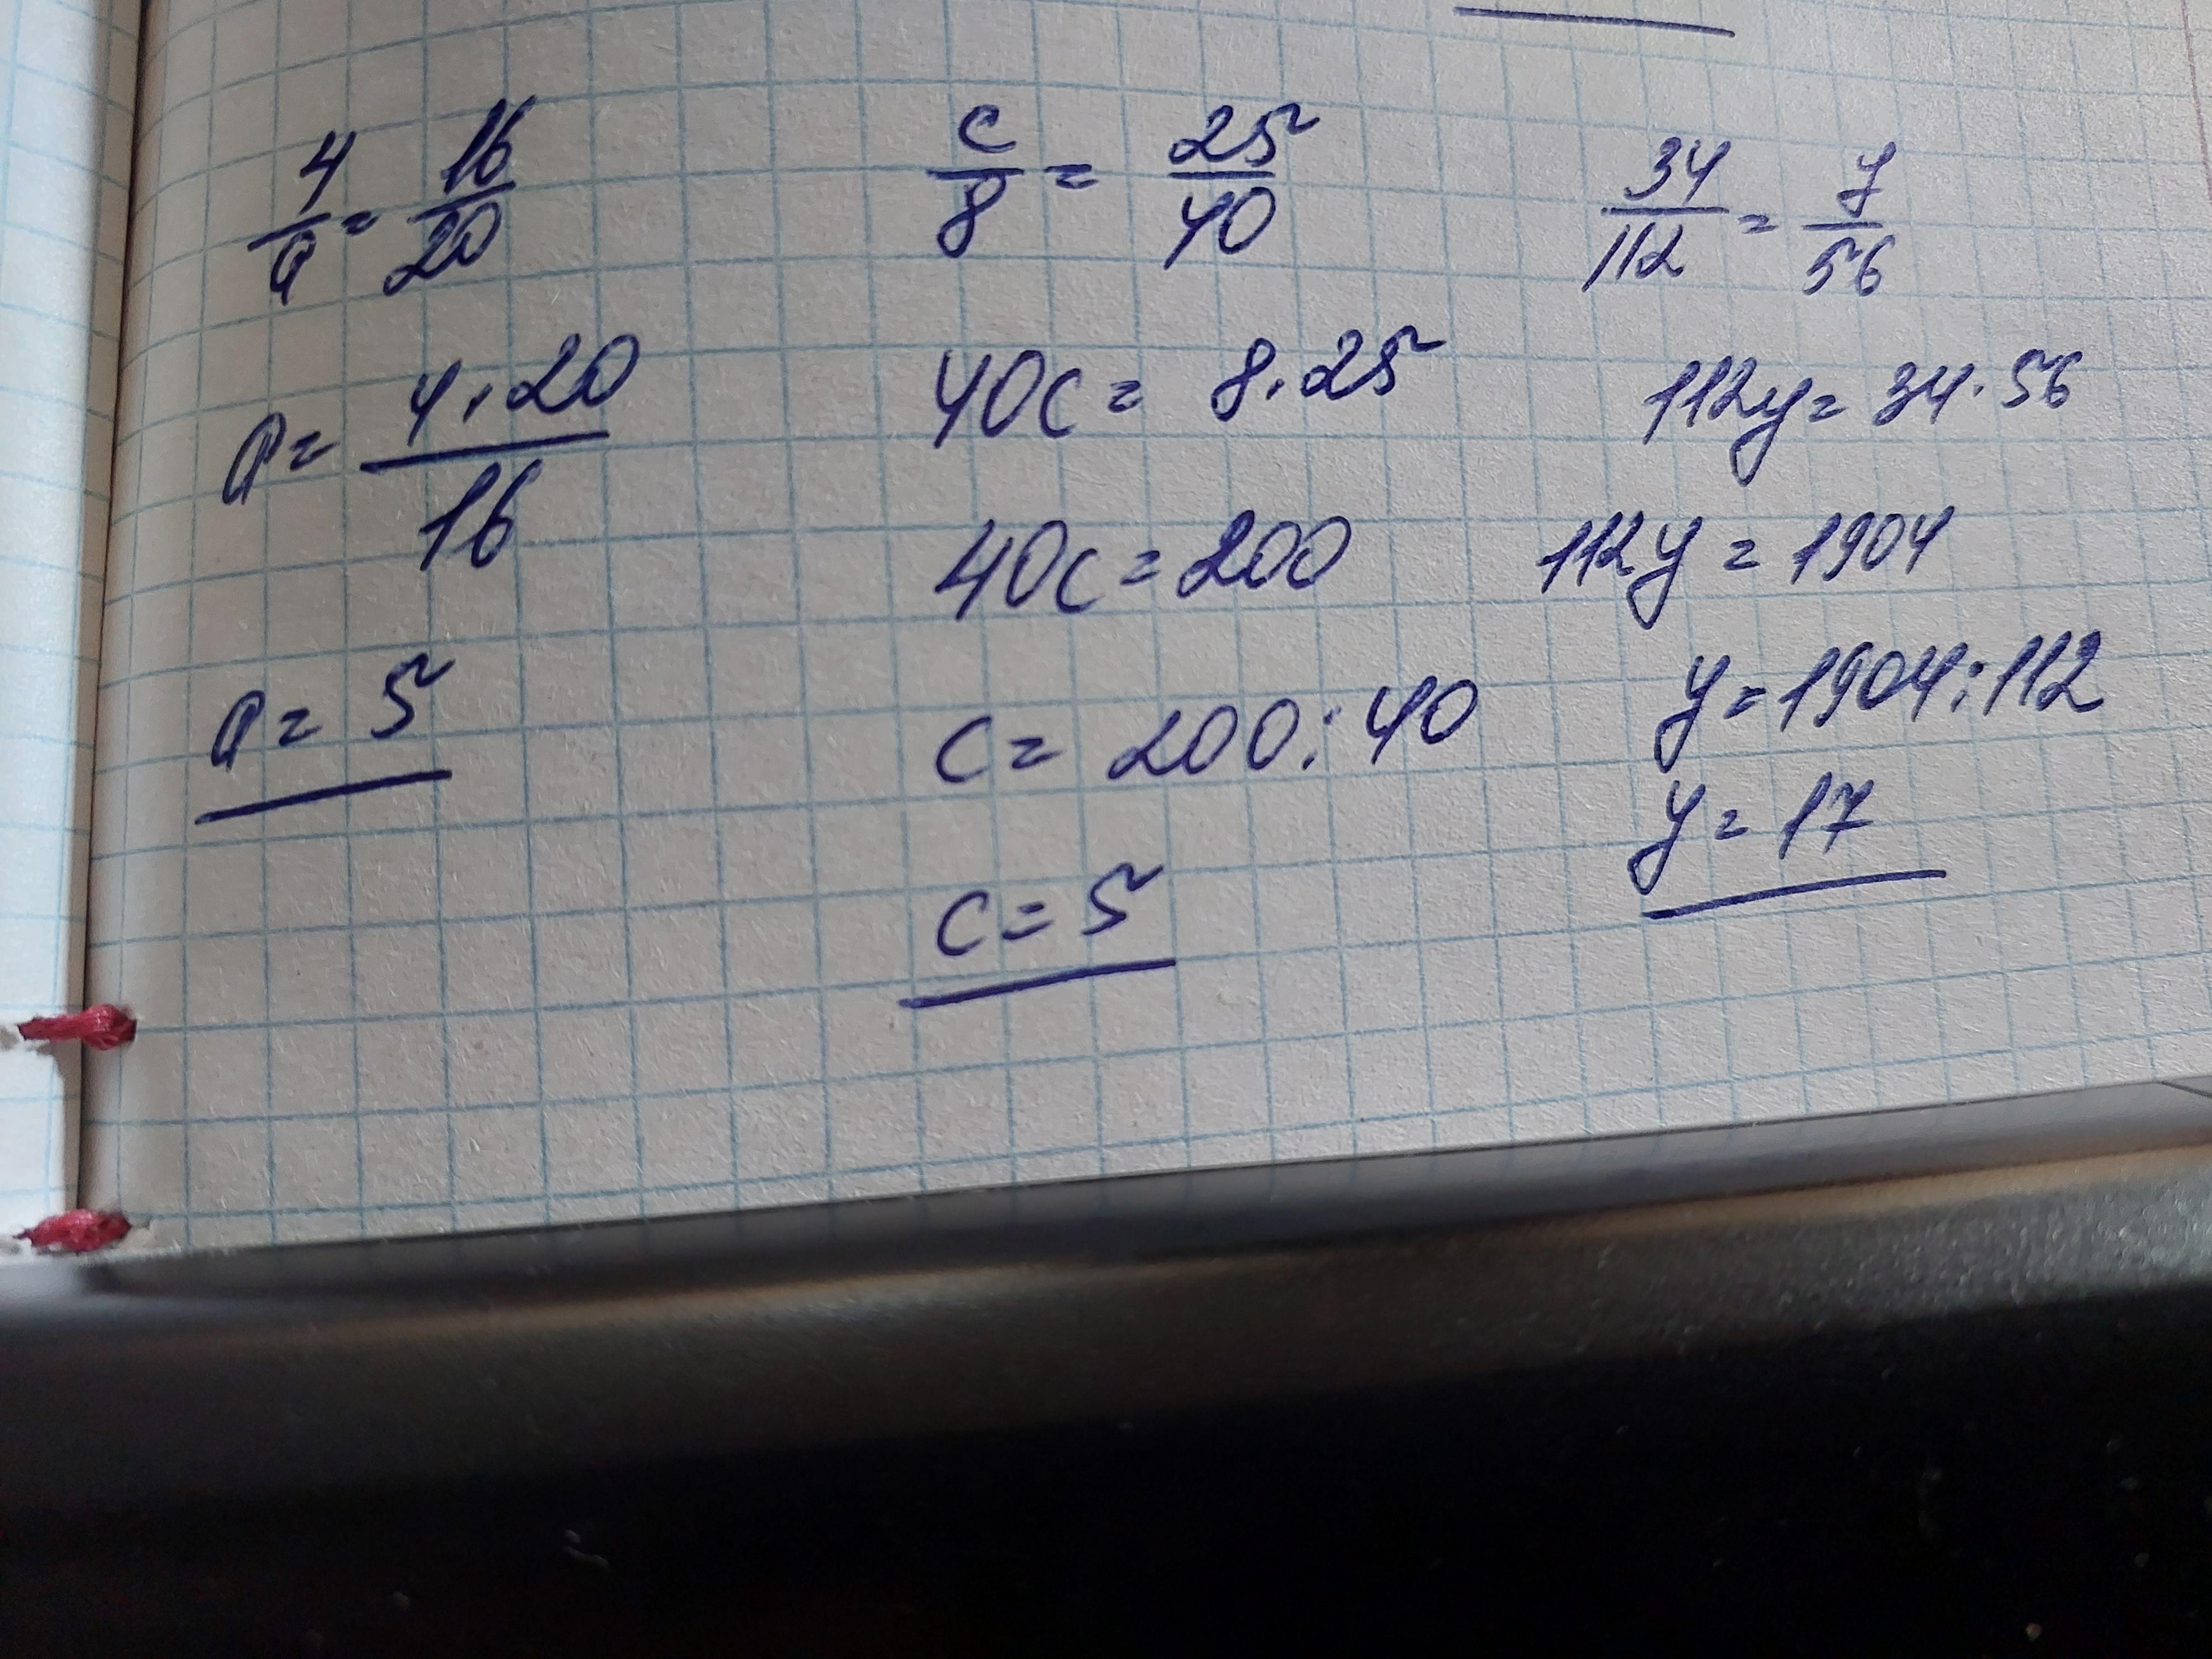 4/a = 16/20
a = 4·20/16
a = 5
c/8 = 25/40
40c = 8·25
40c = 200
c = 200:40
c = 5
34/112 = y/56
112y = 34·56
112y = 1904
y = 1904:112
y = 17